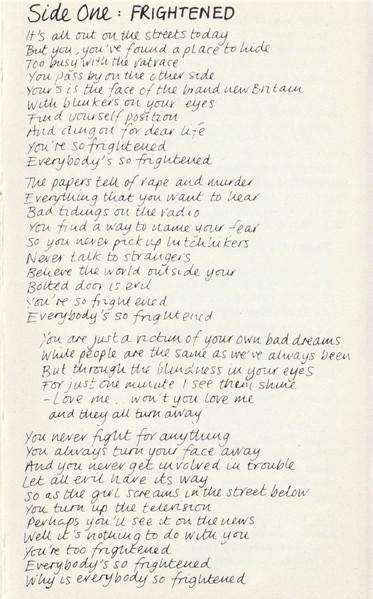 Side One: FRIGHTENED
It's all out on the streets today
But you, you've found a place to hide
Too busy with the ratrace
You pass by on the other side
Yours is the face of the brand new Britain
With blinkers on your eyes
Find yourself position
And cling on for dear life
You're so frightened
Everybody's so frightened
The papers tell of rape and murder
Everything that you want to hear
Bad tidings on the radio
You find a way to name your fear
So you never pick up hitchhikers
Never talk to strangers
Believe the world outside your
Bolted door is evil
You're so frightened
Everybody's so frightened
You are just a victim of your own bad dreams
While people are the same as we've always been
But through the blindness in your eyes
For just one minute I see them shine
- Love me.. won't you love me
and they all turn away
You never fight for anything
You always turn your face away
And you never get involved in trouble
Let all evil have its way
So as the girl screams in the street below
You turn up the television
Perhaps you'll see it on the news
Well it's nothing to do with you
You're too frightened
Everybody's so frightened
Why is everybody so frightened